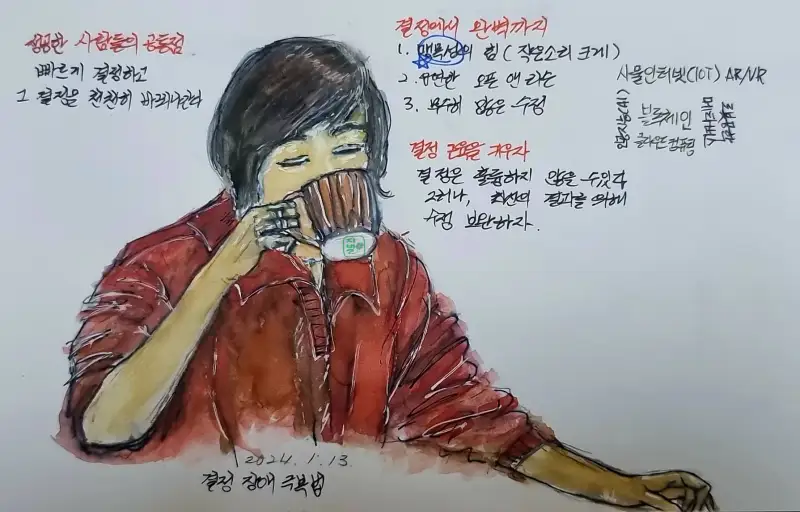 성공한 사람들의 공통점
빠르게 결정하고
그 결정을 천천히
결정에서 완벽까지
1. 맥북성의 힘 (작은소리 크게)
2. 유연한 오픈 앤 라슨
3. 무수히 많은 수정
결정 근육을 키우자
결정은 훌륭하지 않을 수 있다
그러나, 최선의 결과를 위해
수정 보완하자.
사물인터넷(IOT) AR/VR
인공지능(AI)
블록체인
클라우드 컴퓨팅
2024. 1. 13.
결정 장애 극복법